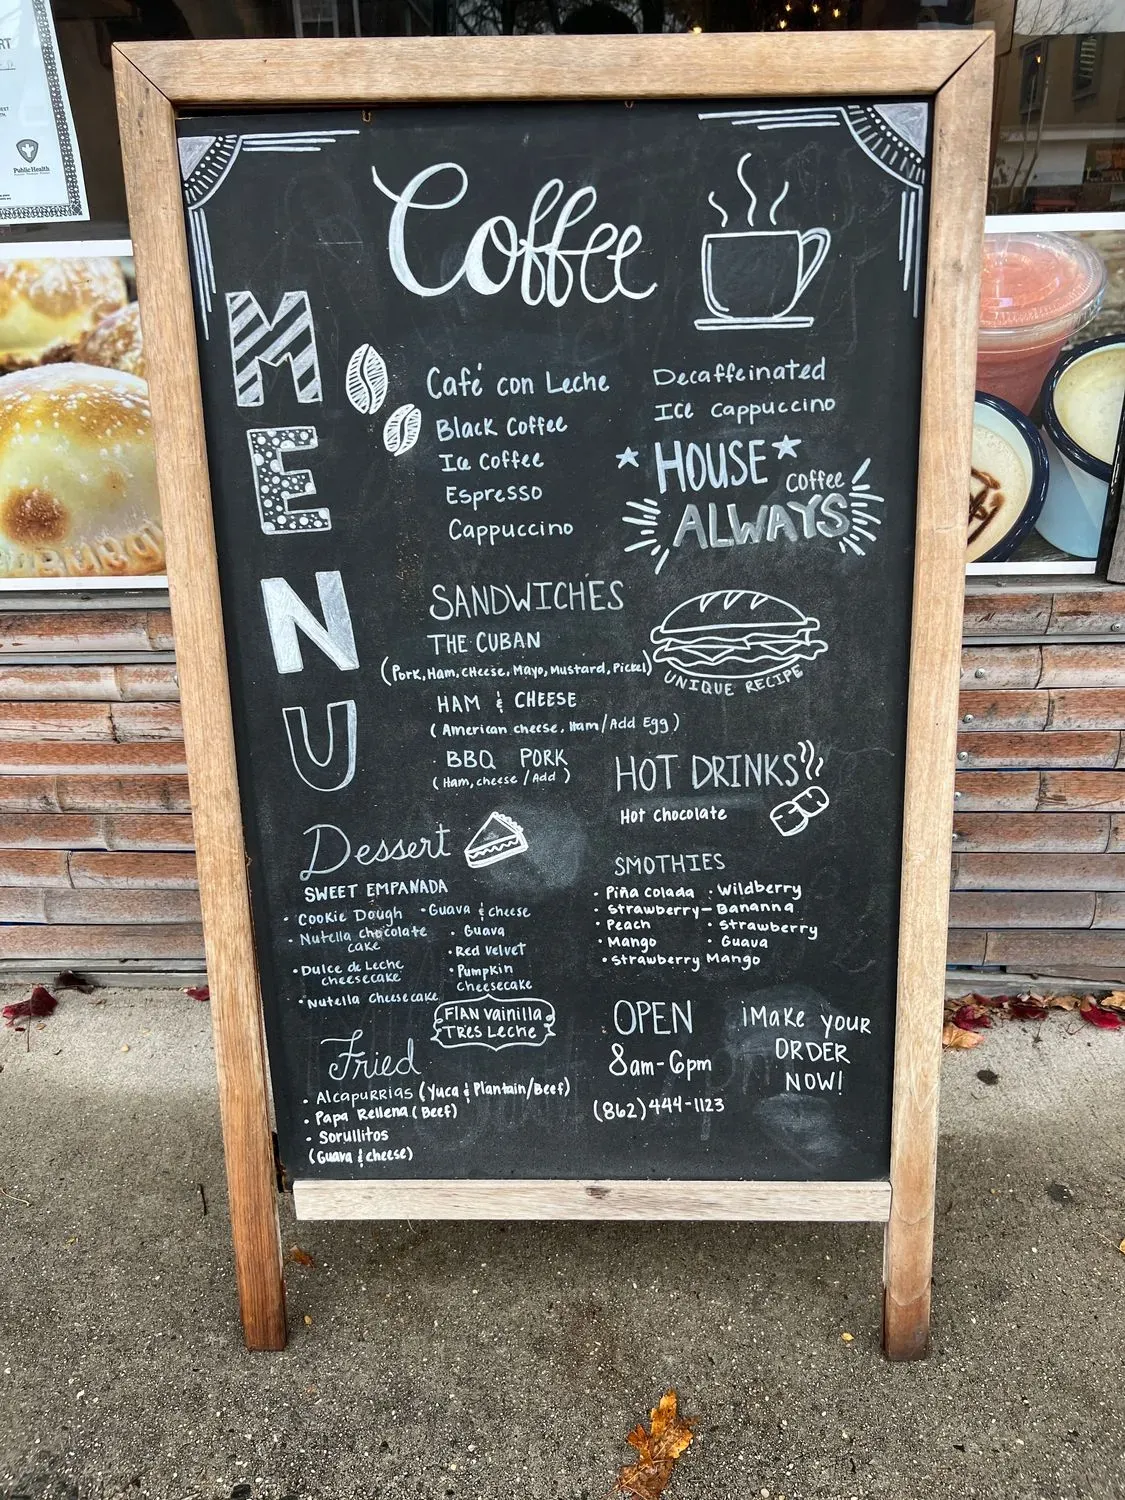 Public Health
Coffee
MENU
Café con Leche
Black Coffee
Ice Coffee
Espresso
Cappuccino
Decaffeinated
Ice Cappuccino
HOUSE
Coffee
ALWAYS
SANDWICHES
THE CUBAN
(Pork, Ham, cheese, Mayo, Mustard, Pickel)
HAM & CHEESE
(American cheese, Ham/Add Egg)
BBQ PORK
(Ham, cheese / Add )
UNIQUE RECIPE
HOT DRINKS
Hot chocolate
Dessert
SWEET EMPANADA
• Cookie Dough
• Nutella chocolate
cake
• Dulce de Leche
cheesecake
• Nutella Cheesecake
• Guava & cheese
• Guava
• Red Velvet
• Pumpkin
cheesecake
FlAN Vainilla
TRes Leche
SMOTHIES
• Piña Colada
• Strawberry-Bananna
• Peach
• Mango
• Strawberry Mango
• Wildberry
• Strawberry
• Guava
Fried
• Alcapurrias (Yuca & Plantain/Beef)
• Papa Rellena (Beef)
• Sorullitos
(Guava & cheese)
OPEN
8am-6pm
(862)444-1123
¡Make your
ORDER
NOW!